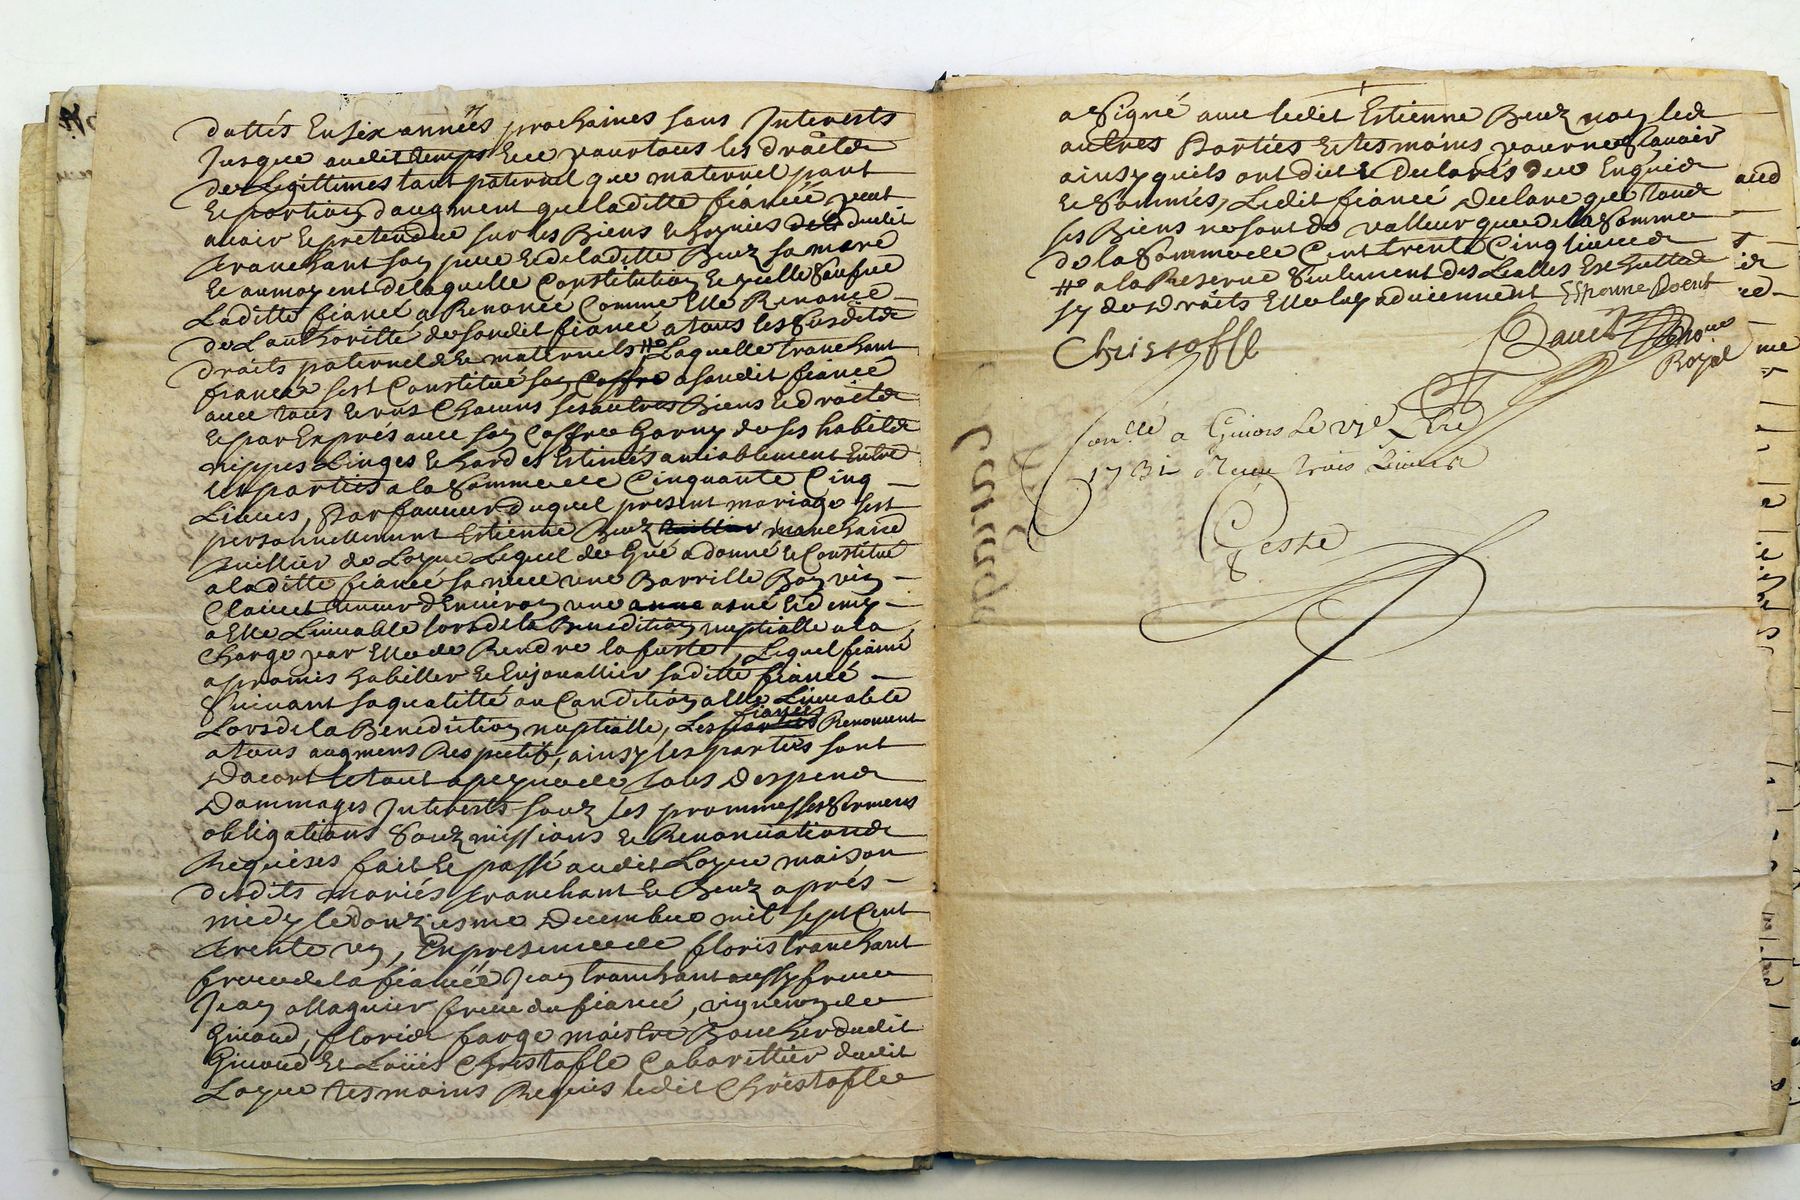 dattés En six années prochaines sans Interests
Jusque audit temps Ece pour tous les droits
de Legittimes tant paternel que maternel part
Et portion daugment que laditte fiancée peut
avoir Et pretendre sur les Biens Et hoyries dudit
tranchant son pere Et de laditte Beuz sa mere
Et aumoyent de laquelle Constitution
Laditte fiancé a Renoncé Comme Elle Renonce
de Lauthoritté de sondit fiancé a tous les susdits
droits paternels Et maternels # Laquelle tranchant
fiancée sest Constitué son Coffre a sondit fiancé
avec tous Et uns Chacuns ses autres Biens Et droits
Et par Exprés avec son Coffre Garny de ses habits
nippes Linges Et hardes Estimés amiablement Entre
les parties a la Somme de Cinquante Cinq
Livres, Par faveur duquel present mariage sest
personnellement Estienne Beuz marchand
de Loyre Lequel de Gré a donné Et Constitué
a laditte fiancé sa niece une Barrille Bon vin
Clairet denviron une asné Et demy
a Elle Livrable lors de la Benediction nuptialle a la
Charge par Elle de Rendre la fuste, Lequel fiancé
a promis habiller Et Enjouallier saditte fiancé
Suivant sa qualitté ou Condition a Elle Livrable
Lors de la Benediction nuptialle, Les fiancés Renoncent
a tous augmens Respectifs, ainsy les parties sont
Dacort Le tout a peyne de tous Despens
Dommages Interests souz les prommesses sermens
obligations souzmissions Et Renonciations
Requises fait Et passé audit Loyre maison
desdits mariés tranchant Et Beuz aprés
midy le douziesme Decembre mil sept Cent
trente un, En presence de floris tranchant
frere de la fiancée Jean tranchant aussy frere
Jean Magnier frere du fiancé, vigneron de
Givord, floris farge maistre Boucher dudit
Givord Et Loüis Christofle Cabarettier dudit
Loyre tesmoins Requis ledit Christofle
a Signé avec ledit Estienne Beuz non les
autres Parties Et tesmoins pour ne Scavoir
ainsy quils ont dit Et Declarés de ce Enquis
Et Sommés, Ledit fiancé Declare que tous
ses Biens ne sont de valleur que de la Somme
de la Somme de Cent trente Cinq livres
# a la Reserve Seulement des Lealles Escheutte
sy des Droits Elle luy adviennent
Christofle
Royal
Con.llé a Givors Le
1731 Reçu trois Livres